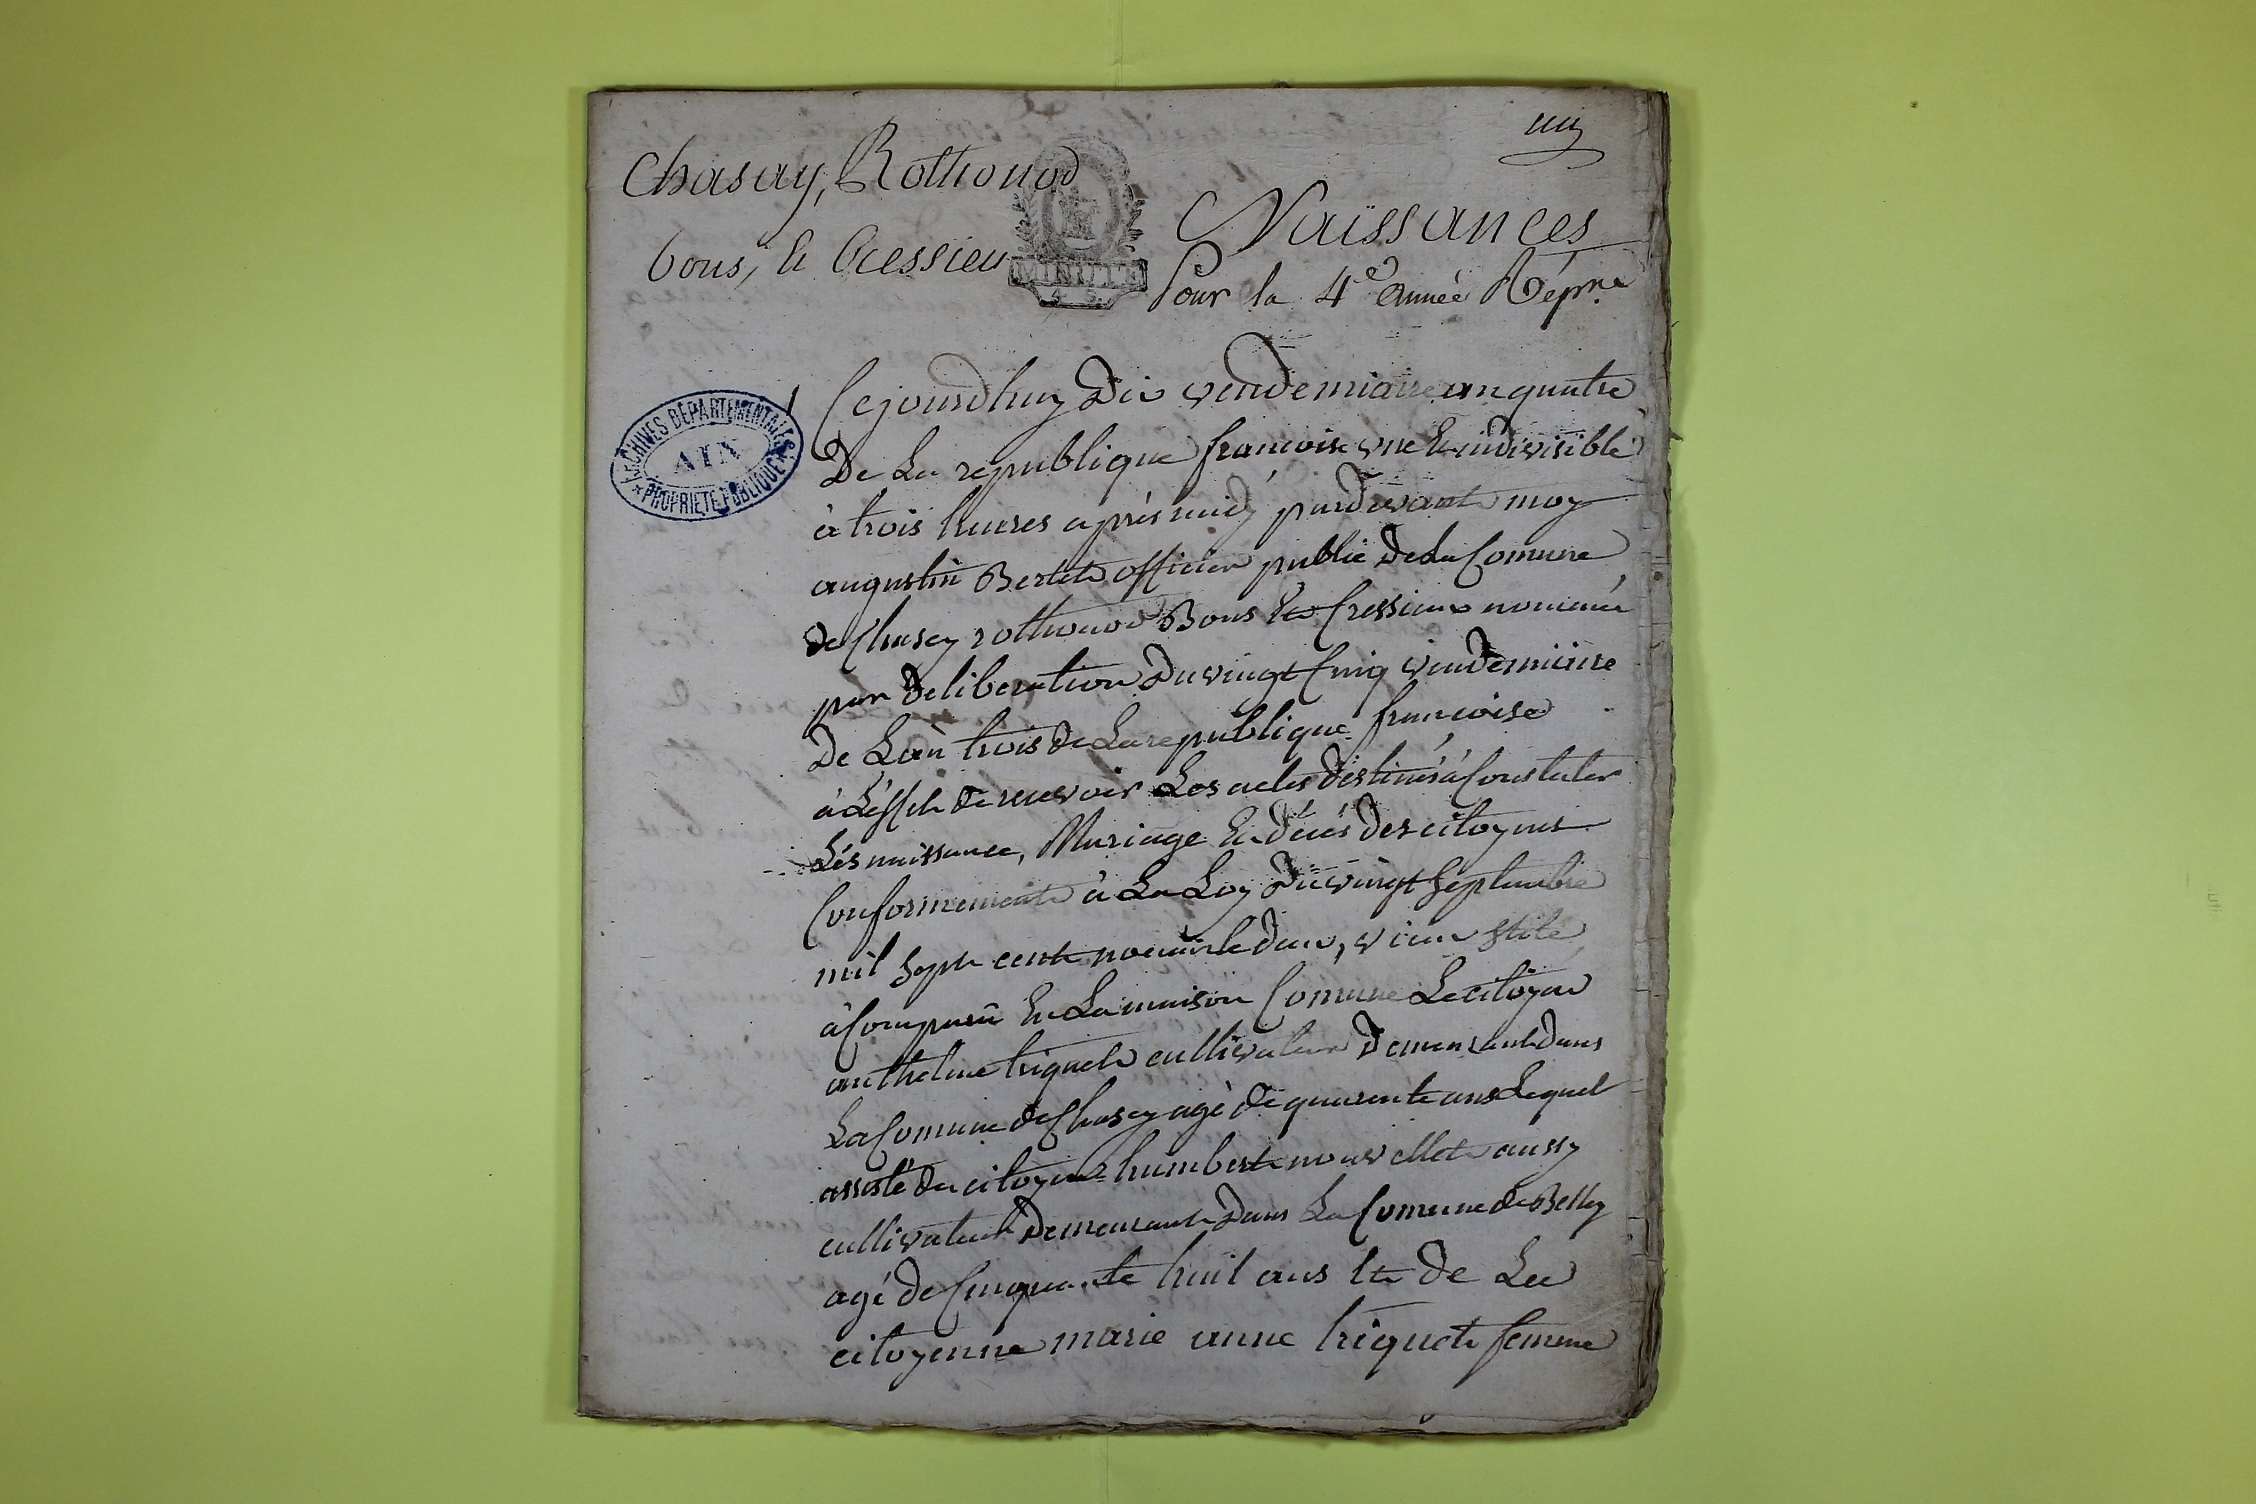 un
Chasay, Rothonod
bons, et Cressieu
MINUTE
4 S.
Naissances
Pour la 4e année Répne
ARCHIVES DÉPARTEMENTALES
AIN
* PROPRIÉTÉ PUBLIQUE *
1
Cejourdhuy Dix vendemiaire an quatre
De La republique francoise une Et indivisible
à trois heures après midy pardevant moy
augustin Bertet officier public de la Comune
de Chasey rothonod Bons Et Cressieux nommé
par deliberation Du vingt Cinq vendemiaire
De Lan trois de La republique françoise
à Léffet de recevoir Les actes destinés à Constater
Lés naissance, Mariage Et décés des citoyens
Conformement à La Loy Du vingt Septembre
mil Sept cent nonante deux, vieux stile
à Comparu En La maison Comune Le citoyen
anthelme triquet cultivateur Demeurant dans
La Comune de Chasey agé de quarente ans Lequel
assisté du citoyen humbert nouvellet aussy
cultivateur Demeurant Dans La Comune de Belley
agé de Cinquante huit ans Et de La
citoyenne marie anne triquet femme